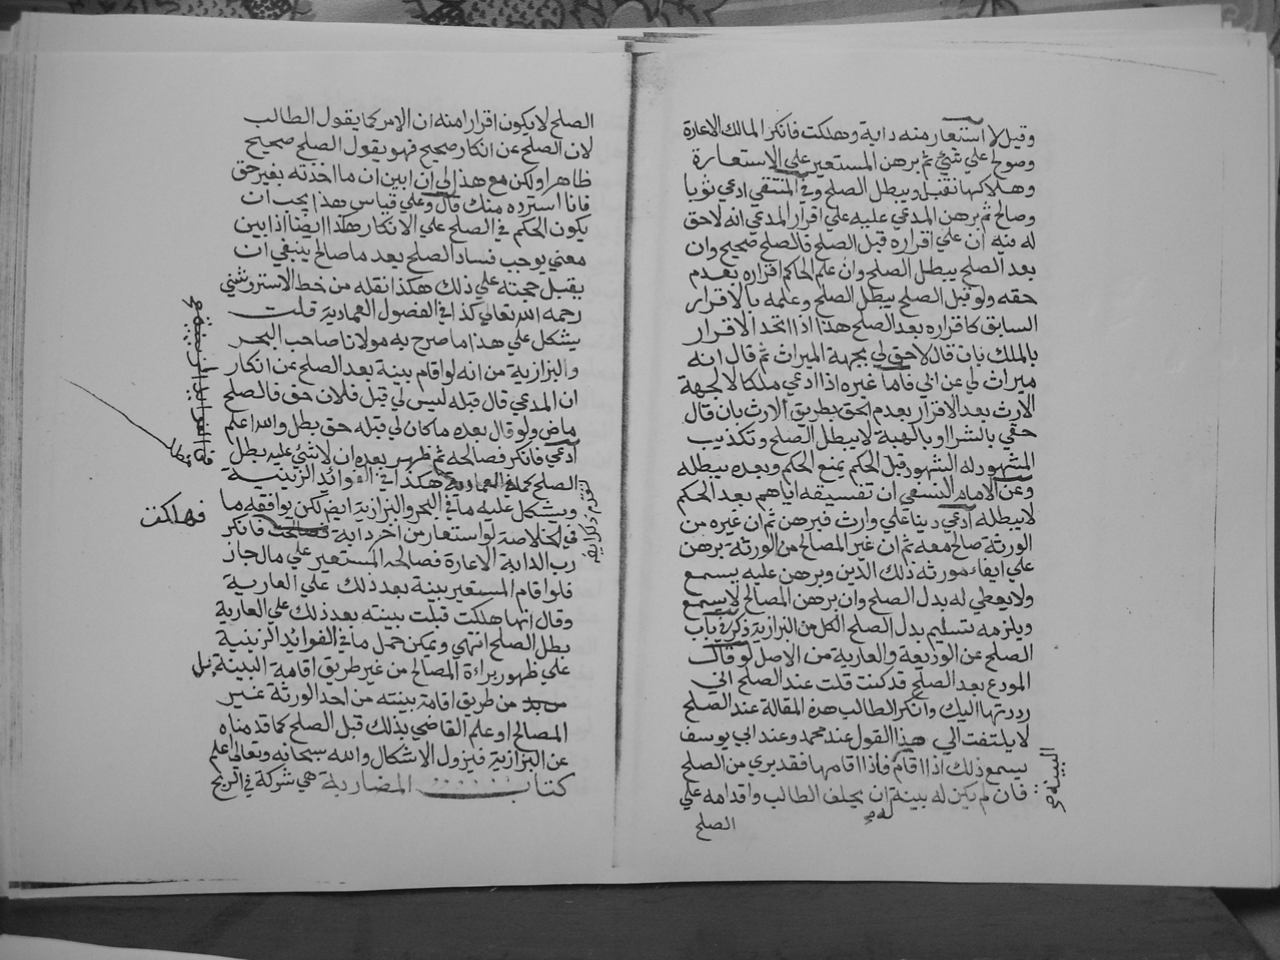 وقيل لا استعار منه دابة وهلكت فانكر المالك الاعارة
وصولح علي شيئ ثم برهن المستعير علي الاستعارة
وهلاكها نقبل ويبطل الصلح وفي المنتقي ادعي ثوبا
وصالح ثم برهن المدعي عليه علي اقرار المدعي انه لاحق
له فيه ان علي اقراره قبل الصلح فالصلح صحيح وان
بعد الصلح يبطل الصلح وان علم الحاكم اقراره بعدم
حقه ولو قبل الصلح يبطل الصلح وعلمه بالاقرار
السابق كاقراره بعد الصلح هذا اذا اتحد الاقرار
بالملك بان قال لاحق لي بجهة الميراث ثم قال انه
ميراث لي عن ابي فاما غيره اذا ادعي ملكا لا بجهة
الارث بعد الاقرار بعدم الحق بطريق الارث بان قال
حقي بالشرا او بالهبة لا يبطل الصلح وتكذيب
المشهود له الشهود قبل الحكم يمنع الحكم وبعده يبطله
وعن الامام النسفي ان تفسيقه اياهم بعد الحكم
لا يبطله ادعي دينا علي وارث فبرهن ثم ان غيره من
الورثة صالح معه ثم ان غير المصالح من الورثة برهن
علي ايفاء مورثه ذلك الدين وبرهن عليه يسمع
ولا يعطي له بدل الصلح وان برهن المصالح لا يسمع
ويلزمه تسليم بدل الصلح الكل من البزازية ذكر في باب
الصلح عن الوديعة والعارية من الاصل لو قال
المودع بعد الصلح قد كنت قلت عند الصلح اني
رددتها اليك وانكر الطالب هذه المقالة عند الصلح
لا يلتفت الي هذا القول عند محمد وعند ابي يوسف
يسمع ذلك اذا اقام فاذا اقامها فقد بري من الصلح
البينة صح
فان لم يكن له بينة ان يحلف الطالب واقدامه علي
له
الصلح
الصلح لا يكون اقرارا منه ان الامر كما يقول الطالب
لان الصلح عن انكار صحيح فهو يقول الصلح صحيح
ظاهرا ولكن مع هذا لي ان ابين ان ما اخذته بغير حق
فانا استرده منك قال وعلي قياس هذا يجب ان
يكون الحكم في الصلح علي الانكار هكذا ايضا اذا بين
معني يوجب فساد الصلح بعد ما صالح ينبغي ان
يقبل حجته علي ذلك هكذا نقله من خط الاستروشني
رحمه الله تعالي كذا في الفصول العمادية قلت
يشكل علي هذا ما صرح به مولانا صاحب البحر
والبزازية من انه لو اقام بينة بعد الصلح عن انكار
ان المدعي قال قبله ليس لي قبل فلان حق فالصلح
ماض ولو قال بعده ما كان لي قبله حق بطل والله اعلم
ادعي فانكر فصالحه ثم ظهر بعده ان لا شئ عليه بطل
الصلح كما في العمادية هكذا في الفوائد الزينية
ويشكل عليه ما في البحر والبزازية ايضا لكن يوافقه ما
في الخلاصة لو استعار من اخر دابة فصالحت فانكر
فهلكت
رب الدابة الاعارة فصالحه المستعير علي مال جاز
فلو اقام المستعير بينة بعد ذلك علي العارية
وقال انها هلكت قبلت بينته بعد ذلك علي العارية
بطل الصلح انتهي ويمكن حمل ما في الفوائد الزينية
علي ظهور براءة المصالح من غير طريق اقامة البينة بل
من طريق اقامة بينته من احد الورثة غير
المصالح او علم القاضي بذلك قبل الصلح كما قدمناه
عن البزازية فيزول الاشكال والله سبحانه وتعالي اعلم
كتاب المضاربة هي شركة في الربح